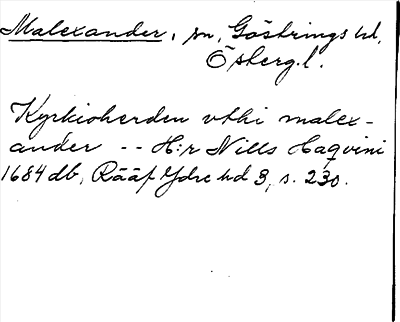 Malexander, sn, Göstrings hd,
Östergl.
Kyrkioherden vthi malex-
ander -- H:r Nills Haqvini
1684 db, Rääf Ydre hd 3, s. 230.